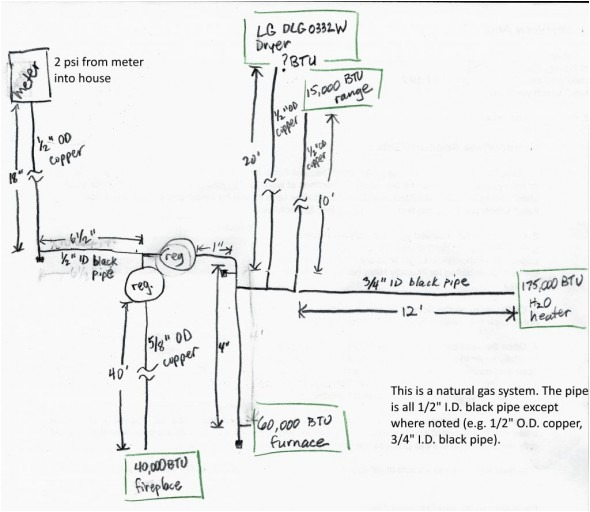 LG DLG0332W
Dryer
? BTU
meter
2 psi from meter
into house
15,000 BTU
range
1/2" OD
copper
1/2" OD
copper
1/2" OD
copper
18"
20'
10'
6 1/2"
1"
reg
1/2" ID black
pipe
reg.
3/4" ID black pipe
175,000 BTU
H2O
heater
12'
5/8" OD
copper
40'
4"
This is a natural gas system. The pipe
is all 1/2" I.D. black pipe except
where noted (e.g. 1/2" O.D. copper,
3/4" I.D. black pipe).
60,000 BTU
furnace
40,000 BTU
fireplace